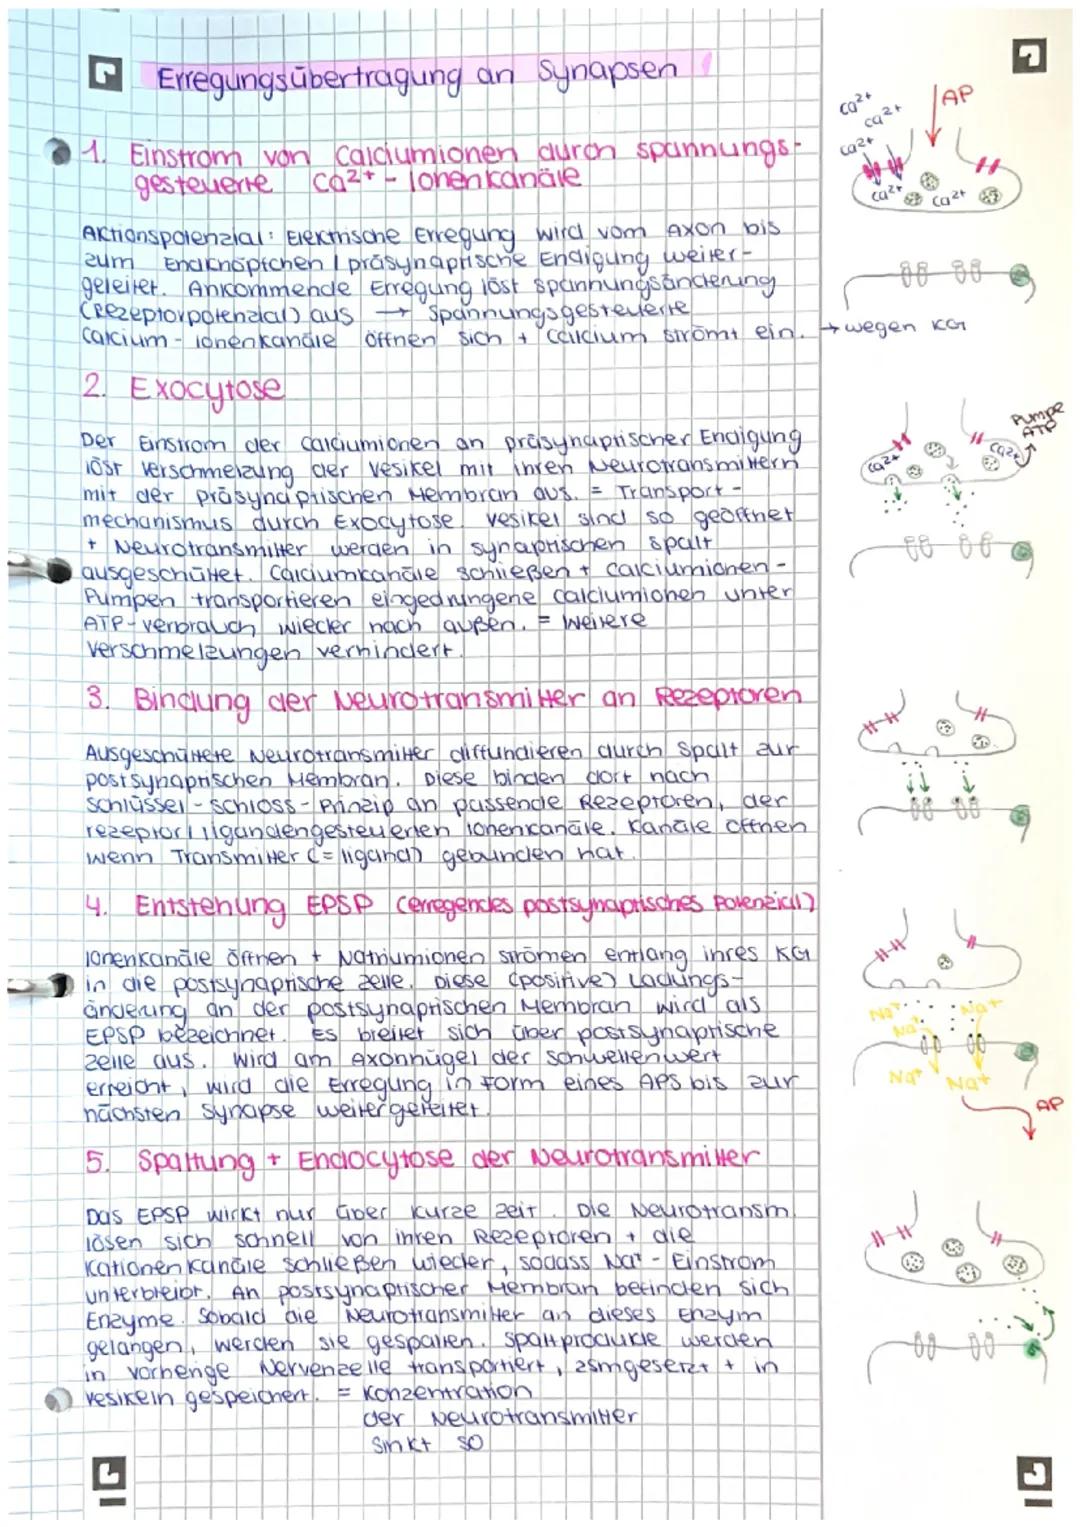 Erregungsübertragung an Synapsen
1. Einstrom von Calciumionen durch spannungs-
gesteuerte Ca²⁺-Ionenkanäle
Aktionspotenzial: Elektrische Erregung wird vom Axon bis
zum Endknöpfchen / präsynaptische Endigung weiter-
geleitet. Ankommende Erregung löst Spannungsänderung
(Rezeptorpotenzial) aus → Spannungsgesteuerte
Calcium-Ionenkanäle öffnen sich + Calcium strömt ein. → wegen KG
Ca²⁺ Ca²⁺ AP
Ca²⁺
Ca²⁺ Ca²⁺
2. Exocytose
Der Einstrom der Calciumionen an präsynaptischer Endigung
löst Verschmelzung der Vesikel mit ihren Neurotransmittern
mit der präsynaptischen Membran aus. = Transport-
mechanismus durch Exocytose. Vesikel sind so geöffnet
+ Neurotransmitter werden in synaptischen Spalt
ausgeschüttet. Calciumkanäle schließen + Calciumionen-
Pumpen transportieren eingedrungene Calciumionen unter
ATP-Verbrauch wieder nach außen. = Weitere
Verschmelzungen verhindert.
Pumpe
ATP
Ca²⁺ Ca²⁺
3. Bindung der Neurotransmitter an Rezeptoren
Ausgeschüttete Neurotransmitter diffundieren durch Spalt zur
postsynaptischen Membran. Diese binden dort nach
Schlüssel-Schloss-Prinzip an passende Rezeptoren, der
rezeptor/ligandengesteuerten Ionenkanäle. Kanäle öffnen
wenn Transmitter (=ligand) gebunden hat.
4. Entstehung EPSP (erregendes postsynaptisches Potenzial)
Ionenkanäle öffnen + Natriumionen strömen entlang ihres KG
in die postsynaptische Zelle. Diese (positive) Ladungs-
änderung an der postsynaptischen Membran wird als
EPSP bezeichnet. Es breitet sich über postsynaptische
Zelle aus. Wird am Axonhügel der Schwellenwert
erreicht, wird die Erregung in Form eines APs bis zur
nächsten Synapse weitergeleitet.
Na⁺ Na⁺
Na⁺
Na⁺ Na⁺
AP
5. Spaltung + Endocytose der Neurotransmitter
Das EPSP wirkt nur über kurze Zeit. Die Neurotransm.
lösen sich schnell von ihren Rezeptoren + die
Kationenkanäle schließen wieder, sodass Na⁺-Einstrom
unterbleibt. An postsynaptischer Membran befinden sich
Enzyme. Sobald die Neurotransmitter an dieses Enzym
gelangen, werden sie gespalten. Spaltprodukte werden
in vorherige Nervenzelle transportiert, zsmgesetzt + in
Vesikeln gespeichert. = Konzentration
der Neurotransmitter
sinkt so